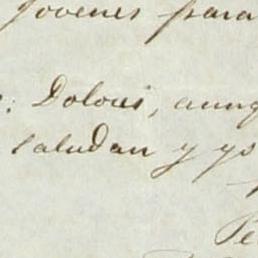 jovenes para
: Dolores, aunq
saludan y yo
Pe